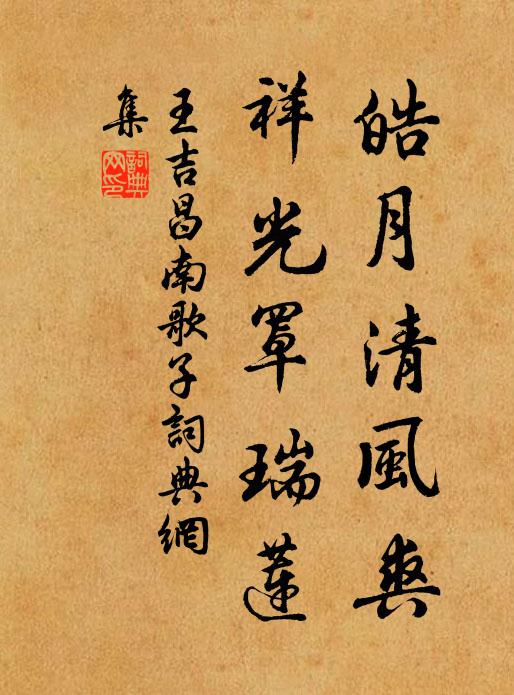 皓月清風爽
祥光罩瑞蓮
王吉昌南歌子詞典網
集
詞典網印